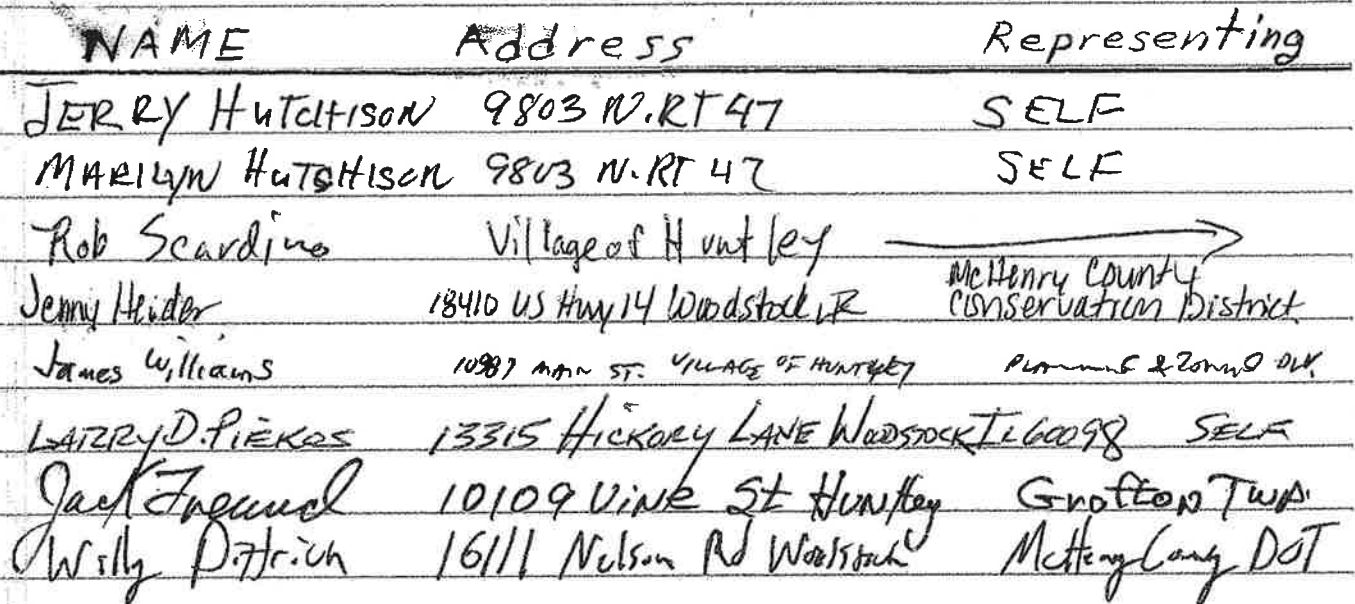 NAME Address Representing
JERRY HUTCHISON 9803 N. RT 47 SELF
MARILYN HUTCHISON 9803 N. RT 47 SELF
Rob Scardino Village of Huntley →
Jenny Heider 18410 US Hwy 14 Woodstock, IL McHenry County Conservation District
James Williams 10987 MAIN ST. VILLAGE OF HUNTLEY PLANNING & ZONING DIV.
LARRY D. PIEKOS 13315 HICKORY LANE WOODSTOCK IL 60098 SELF
Jack Freund 10109 Vine St Huntley Grafton Twp.
Willy Dittrich 16111 Nelson Rd Woodstock McHenry County DOT